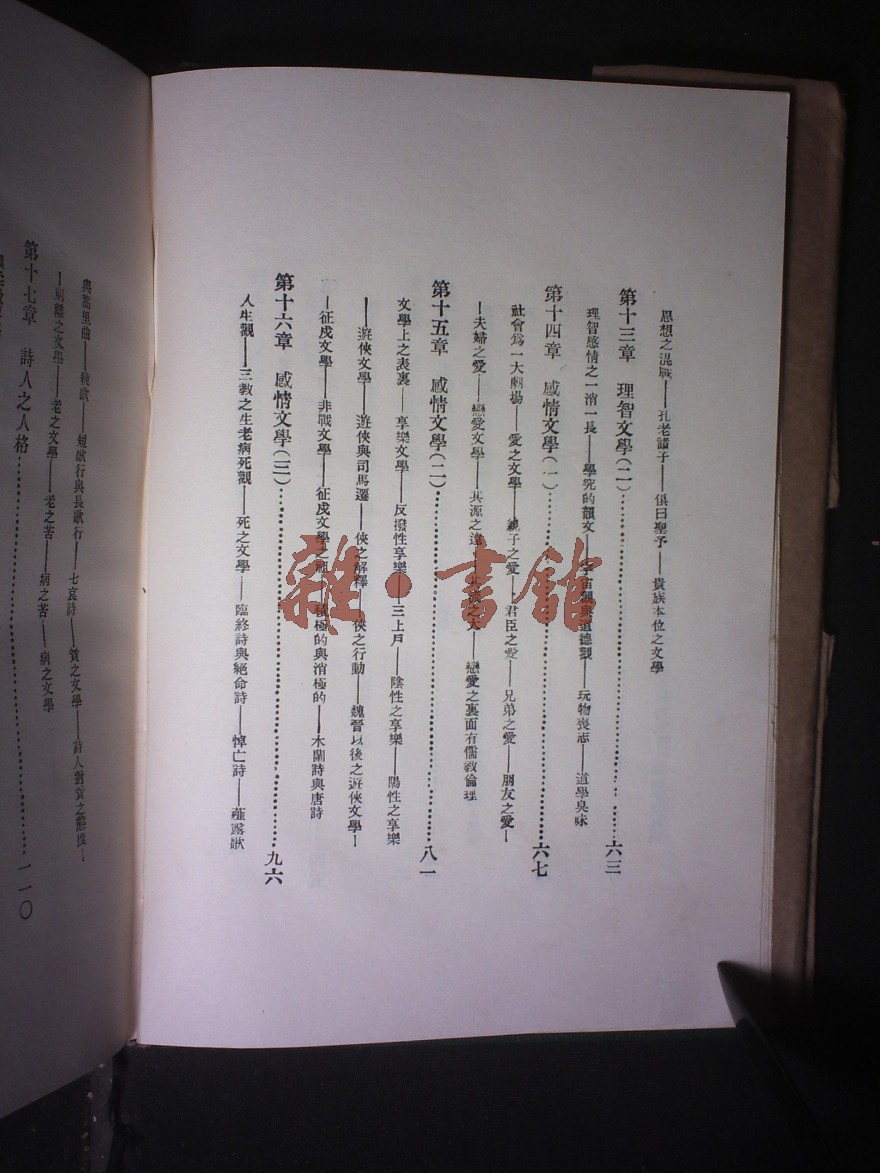 思想之混戰——孔老諸子——俱曰聖予——貴族本位之文學
第十三章 理智文學(二)……六三
理智感情之一消一長——學究的韻文——宇宙觀與道德觀——玩物喪志——道學臭味
第十四章 感情文學(一)……六七
社會爲一大劇場——愛之文學——親子之愛——君臣之愛——兄弟之愛——朋友之愛—
—夫婦之愛——戀愛文學——其源之遠——之大——戀愛之裏面有儒教倫理
第十五章 感情文學(二)……八一
文學上之表裏——享樂文學——反撥性享樂——三上戶——陰性之享樂——陽性之享樂
——遊俠文學——遊俠與司馬遷——俠之解釋——俠之行動——魏晉以後之遊俠文學—
—征戍文學——非戰文學——征戍文學之——積極的與消極的——木蘭詩與唐詩
第十六章 感情文學(三)……九六
人生觀——三教之生老病死觀——死之文學——臨終詩與絕命詩——悼亡詩——薤露歌
與蒿里曲——輓歌——短歌行與長歌行——七哀詩——貧之文學——詩人對貧之態度—
—別離之文學——老之文學——老之苦——病之苦——病之文學
第十七章 詩人之人格……一一〇
雜·書館